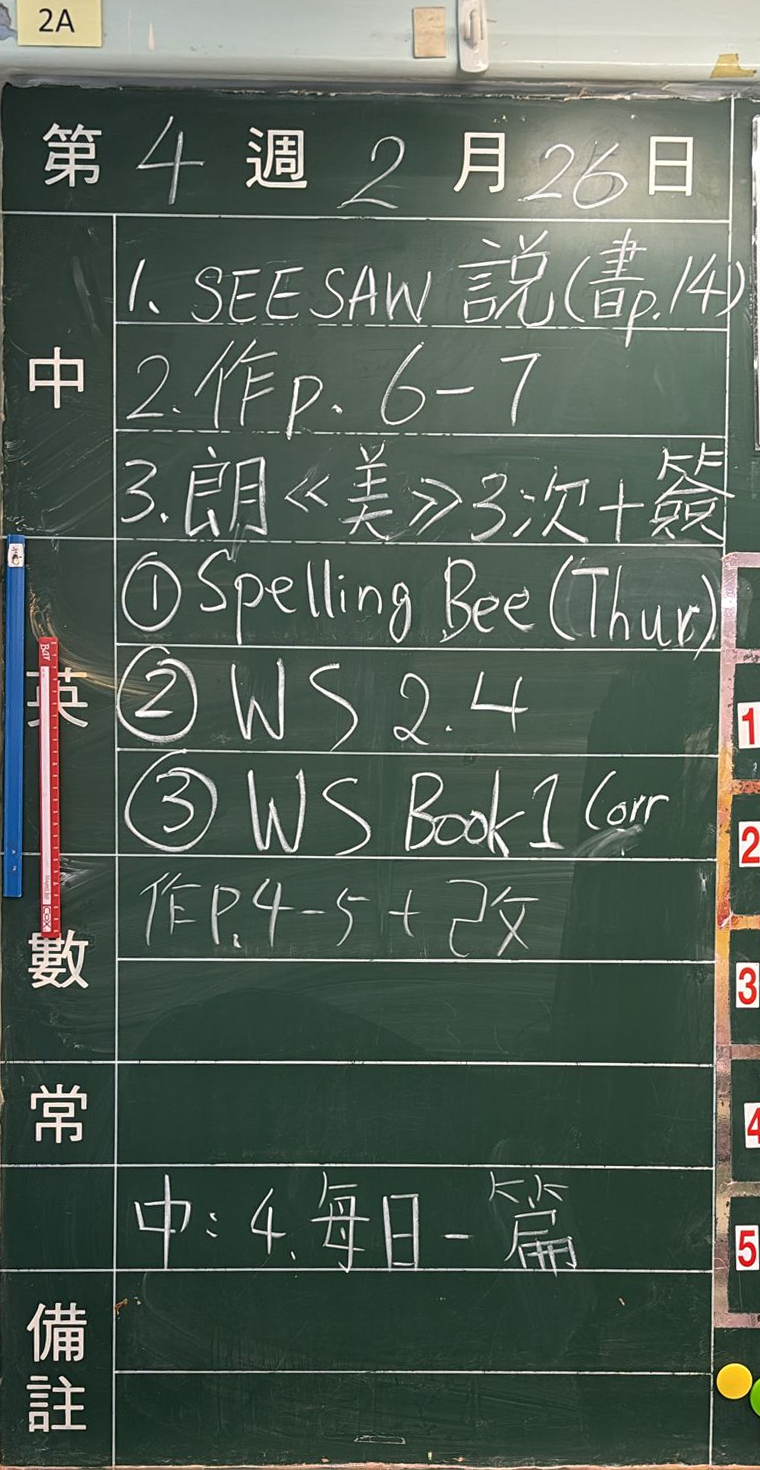 2A
第 4 週 2 月 26 日
中
1. SEESAW 說(書p.14)
2. 作p. 6-7
3. 朗《美》3次+簽
英
① Spelling Bee (Thur)
② WS 2.4
③ WS Book1 Corr
數
作P.4-5+改
常
中: 4. 每日一篇
備註
1
2
3
4
5